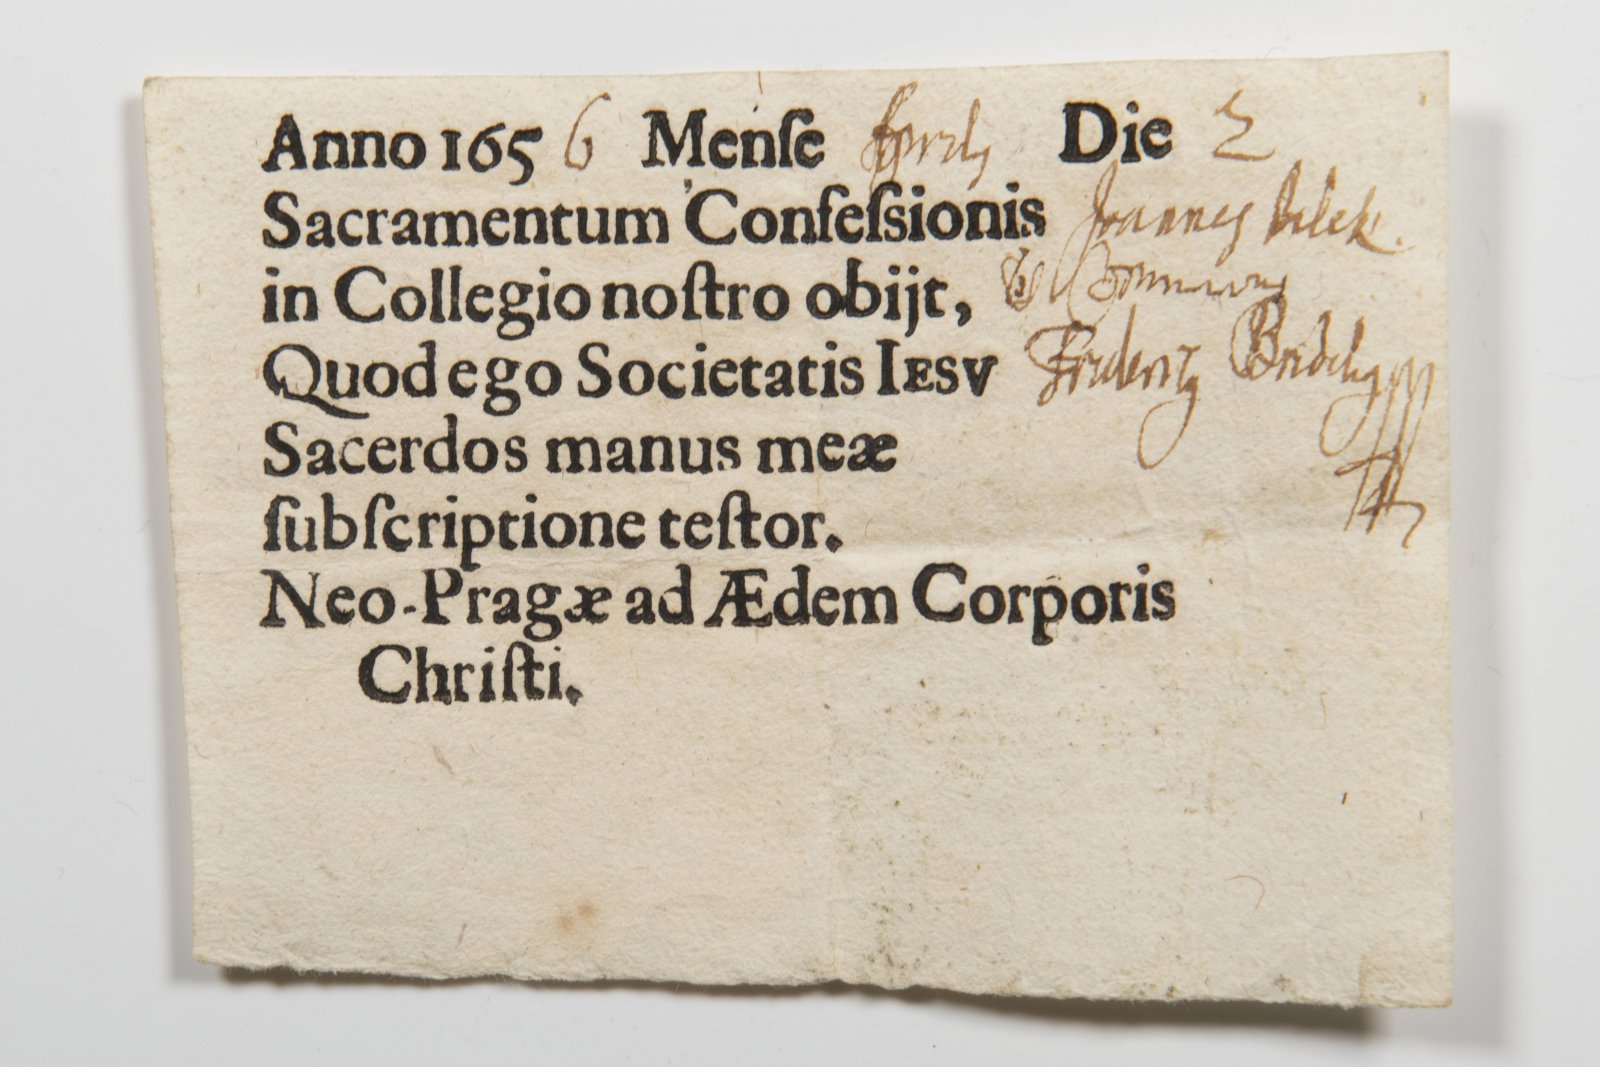 Anno 1656 Menſe Aprilis Die 2
Sacramentum Confeſsionis Joannes
in Collegio noſtro obijt, et
Quod ego Societatis IESV Fridericus Bridelius
Sacerdos manus meæ
ſubſcriptione teſtor.
Neo-Pragæ ad Ædem Corporis
Chriſti.